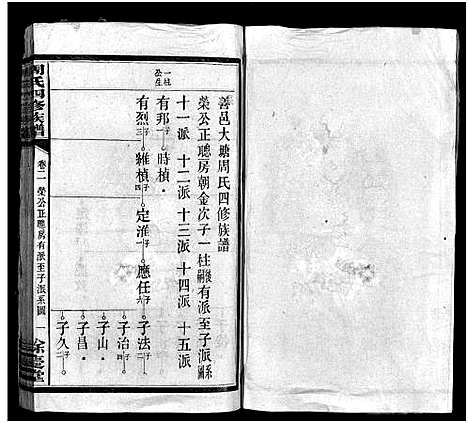 善邑大塘周氏四修族譜
榮公正聰房朝金次子一柱後嗣有派至子派系圖
十一派 十二派 十三派 十四派 十五派
一柱公生
有邦子一 時楨
有烈子三 維楨子四 定淮子一 應任子六 子法子一
子治子四
子山
子昌
子久子
周氏四修族譜
卷二 榮公正聰房有派至子派系圖 一